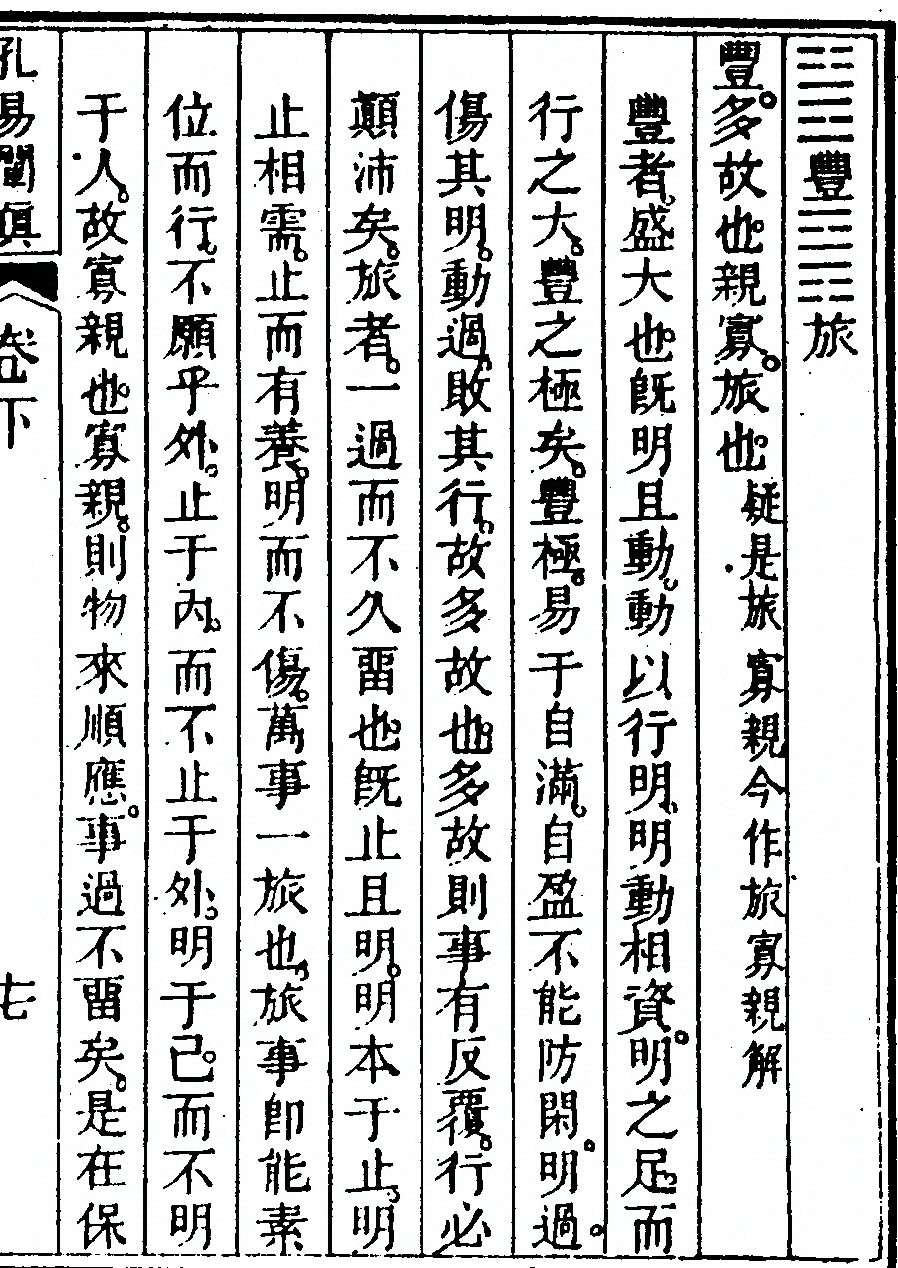 ䷶豐䷷旅
豐。多故也。親寡。旅也疑是旅寡親今作旅寡親解
豐者。盛大也。既明且動。動以行明。明動相資。明之足。而
行之大。豐之極矣。豐極。易于自滿。自盈不能防閑。明過。
傷其明。動過。敗其行。故多故也。多故則事有反覆。行必
顛沛矣。旅者。一過而不久畱也。既止且明。明本于止。明
止相需。止而有養。明而不傷。萬事一旅也。旅事卽能素
位而行。不願乎外。止于內。而不止于外。明于己。而不明
于人。故寡親也。寡親。則物來順應。事過不畱矣。是在保
孔易闡眞 卷下 七